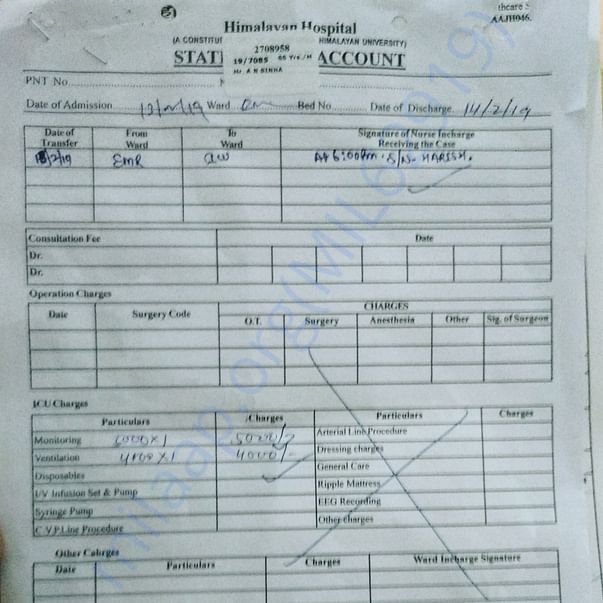 thcare S
AAJH046.
Himalayan Hospital
(A CONSTITUT HIMALAYAN UNIVERSITY)
STAT ACCOUNT
2708958
19/7085 65 Yrs./M
Mr. A N SINHA
PNT No.
Date of Admission 13/2/19 Ward Bed No. Date of Discharge 14/2/19
Date of Transfer From Ward To Ward Signature of Nurse Incharge Receiving the Case
13/2/19 EMR At 6:00Pm. S/N- HARISH.
Consultation Fee Date
Dr.
Dr.
Operation Charges
Date Surgery Code CHARGES
O.T. Surgery Anesthesia Other Sig. of Surgeon
ICU Charges
Particulars /Charges Particulars Charges
Monitoring 5000/- Arterial Line Procedure
Ventilation 4000/- Dressing charges
Disposables General Care
I/V Infusion Set & Pump Ripple Mattress
Syringe Pump EEG Recording
C.V.P.Line Procedure Other charges
Other Cahrges
Date Particulars Charges Ward Incharge Signature
milaap.org(MIL69919)